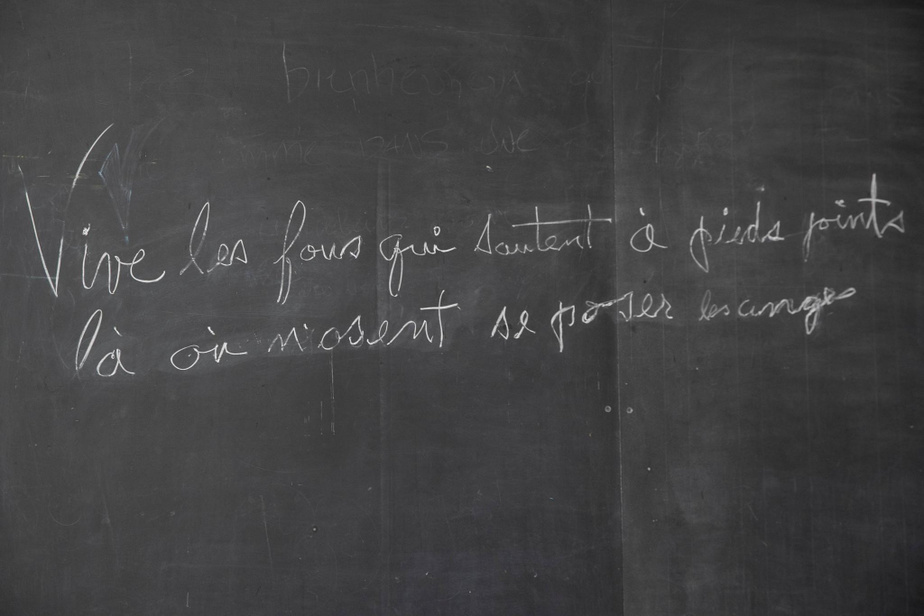 Vive les fous qui sautent à pieds joints
là où n'osent se poser les anges